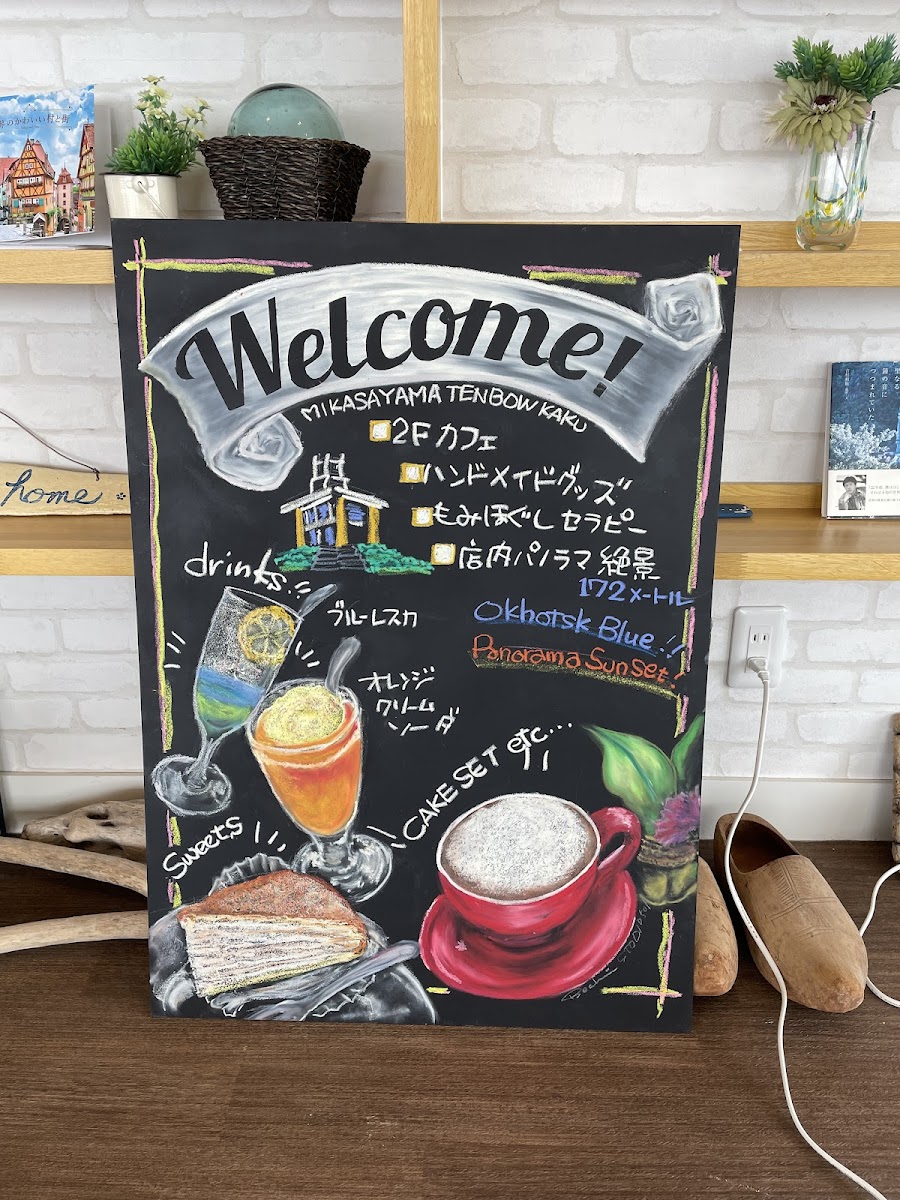 Welcome!
MIKASAYAMA TENBOW KAKU
2F カフェ
ハンドメイドグッズ
もみほぐしセラピー
店内パノラマ 絶景
172メートル
Okhotsk Blue!!
Panorama Sunset!
drinks!!
ブルーレスカ
オレンジ
クリーム
ソーダ
CAKE SET etc...
Sweets
home
のかわいい村と街